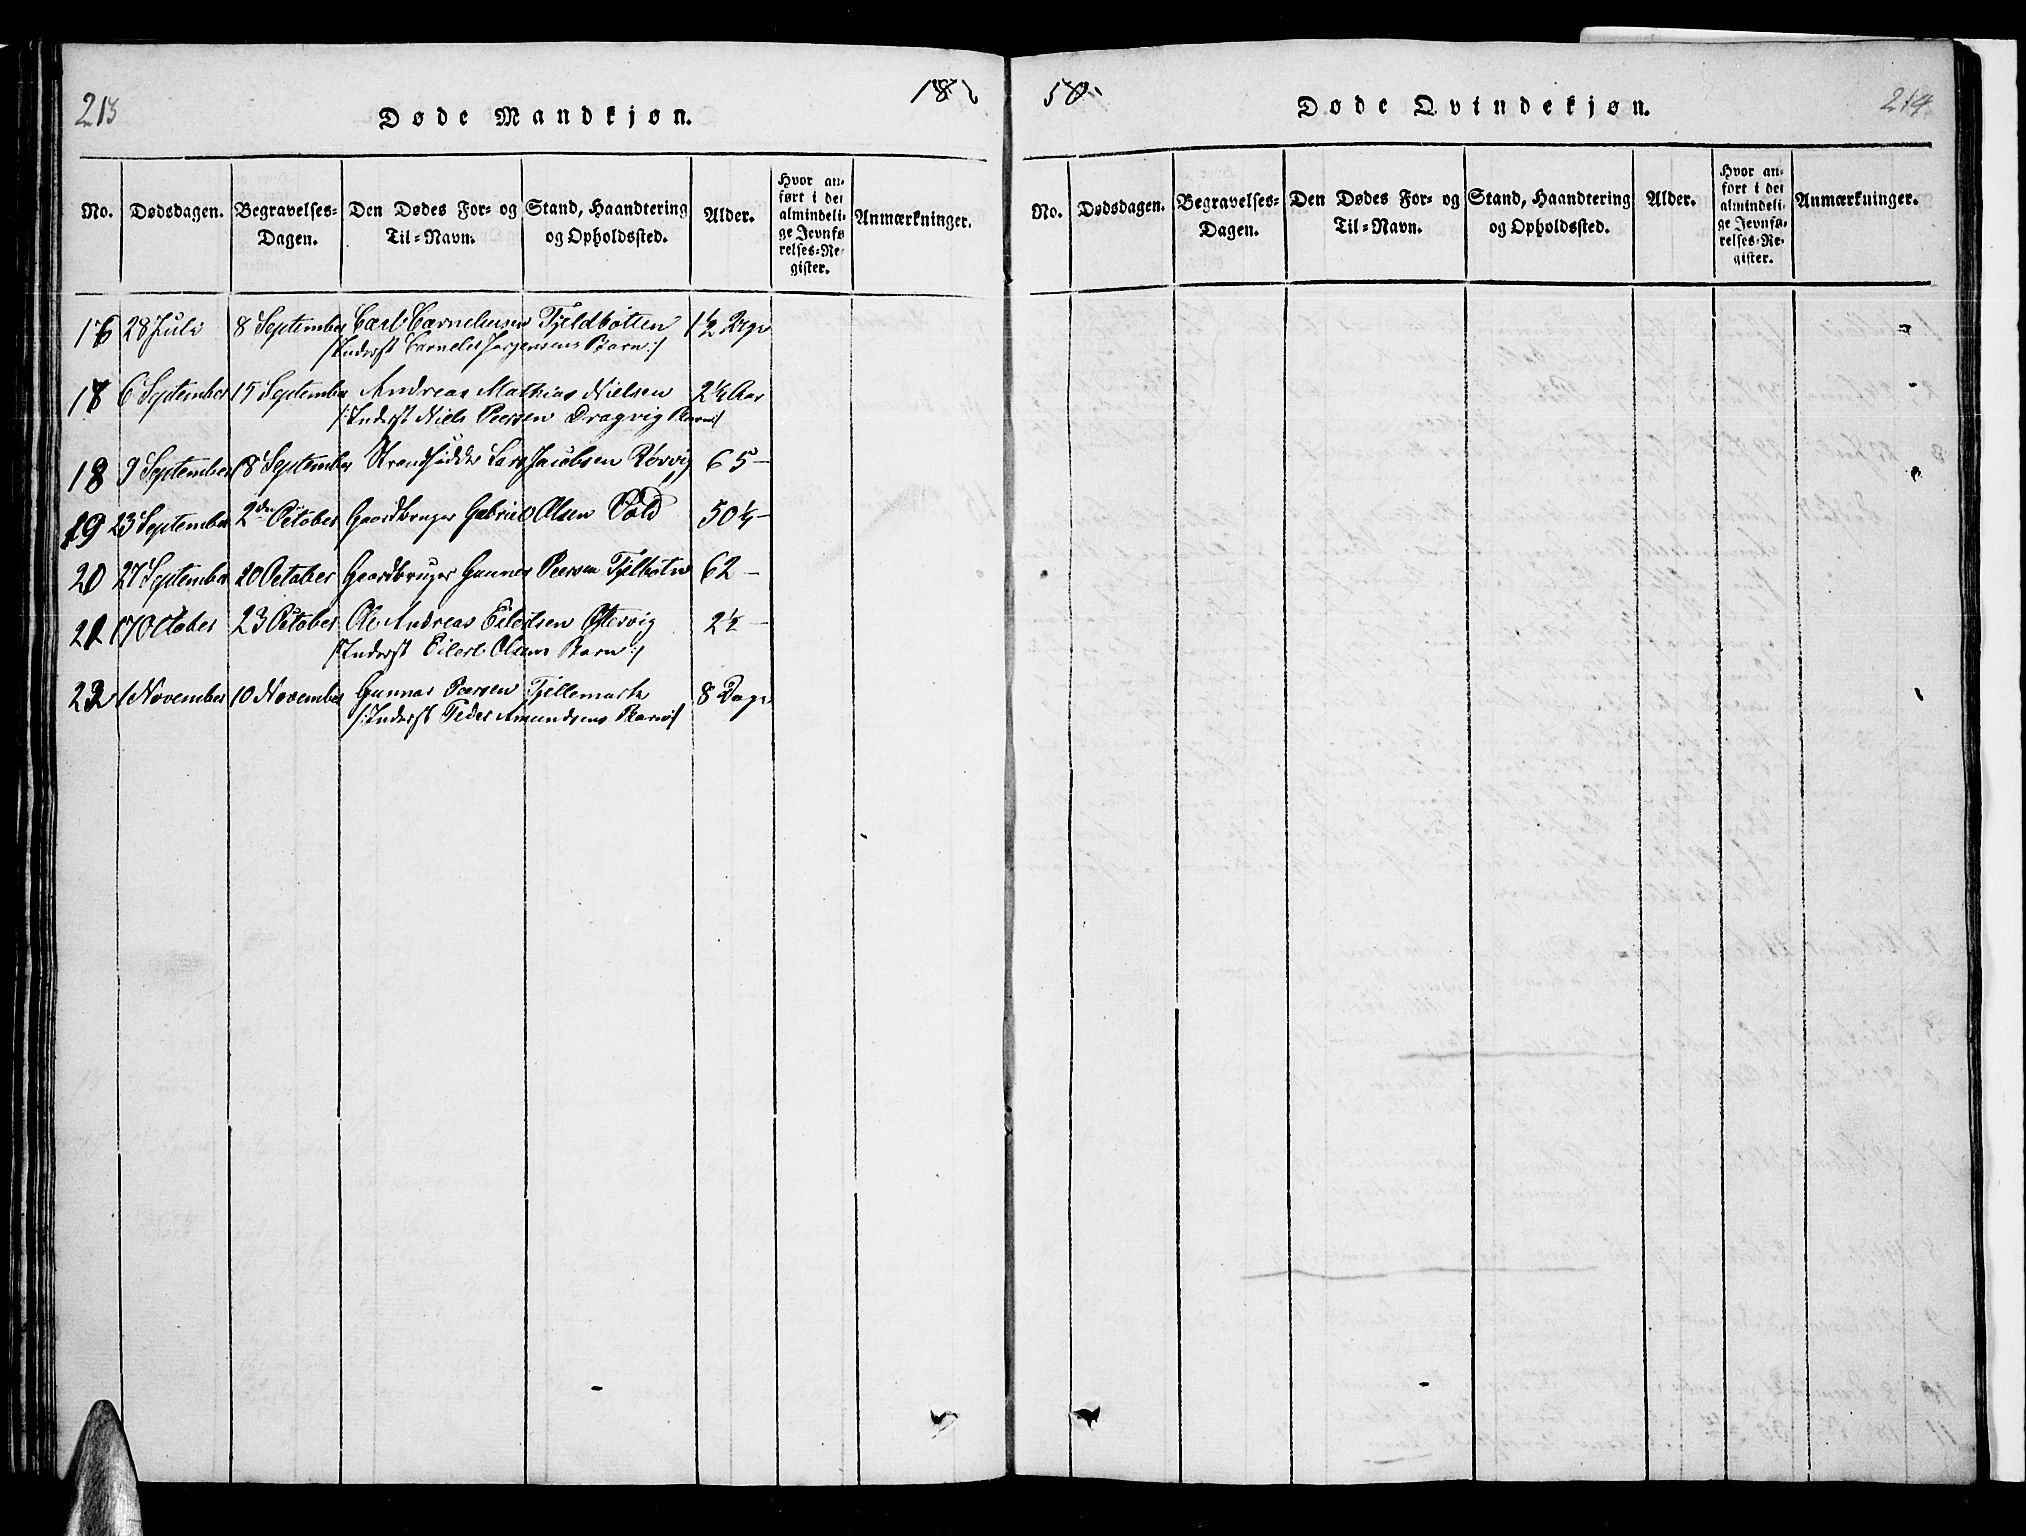 213
Døde Mandkjøn.
18
50.
Døde Qvindekjøn.
214
No. Dødsdagen. Begravelses-Dagen. Den Dødes For- og Til-Navn. Stand, Haandtering og Opholdssted. Alder. Hvor anført i det almindelige Jevnførelses-Register. Anmærkninger.
No. Dødsdagen. Begravelses-Dagen. Den Dødes For- og Til-Navn. Stand, Haandtering og Opholdssted. Alder. Hvor anført i det almindelige Jevnførelses-Register. Anmærkninger.
16 28 Juli 8 September Carl Corneliusen Tjeldbotten 1½
/:Inderst Cornelis Jørgensens Barn:/
18 6 September 15 September Andreas Mathias Nielsen 2½ Aar
/:Inderst Niels Peersen Dragvig Barn:/
18 9 September 18 September Lars Jacobsen Rørvig 65 –
19 23 September 2den October Gaardbruger Gabriel Olsen Vold 50½ –
20 27 September 20 October Gaardbruger Gunner Peersen 62 –
21 17 October 23 October Ole Andreas Eilertsen 2½ –
/:Inderst Eilert Olsens Barn:/
22 1 November 10 November Gunnar Peersen Tjellemark 8 Dage
/:Inderst Peder Amundsens Barn:/